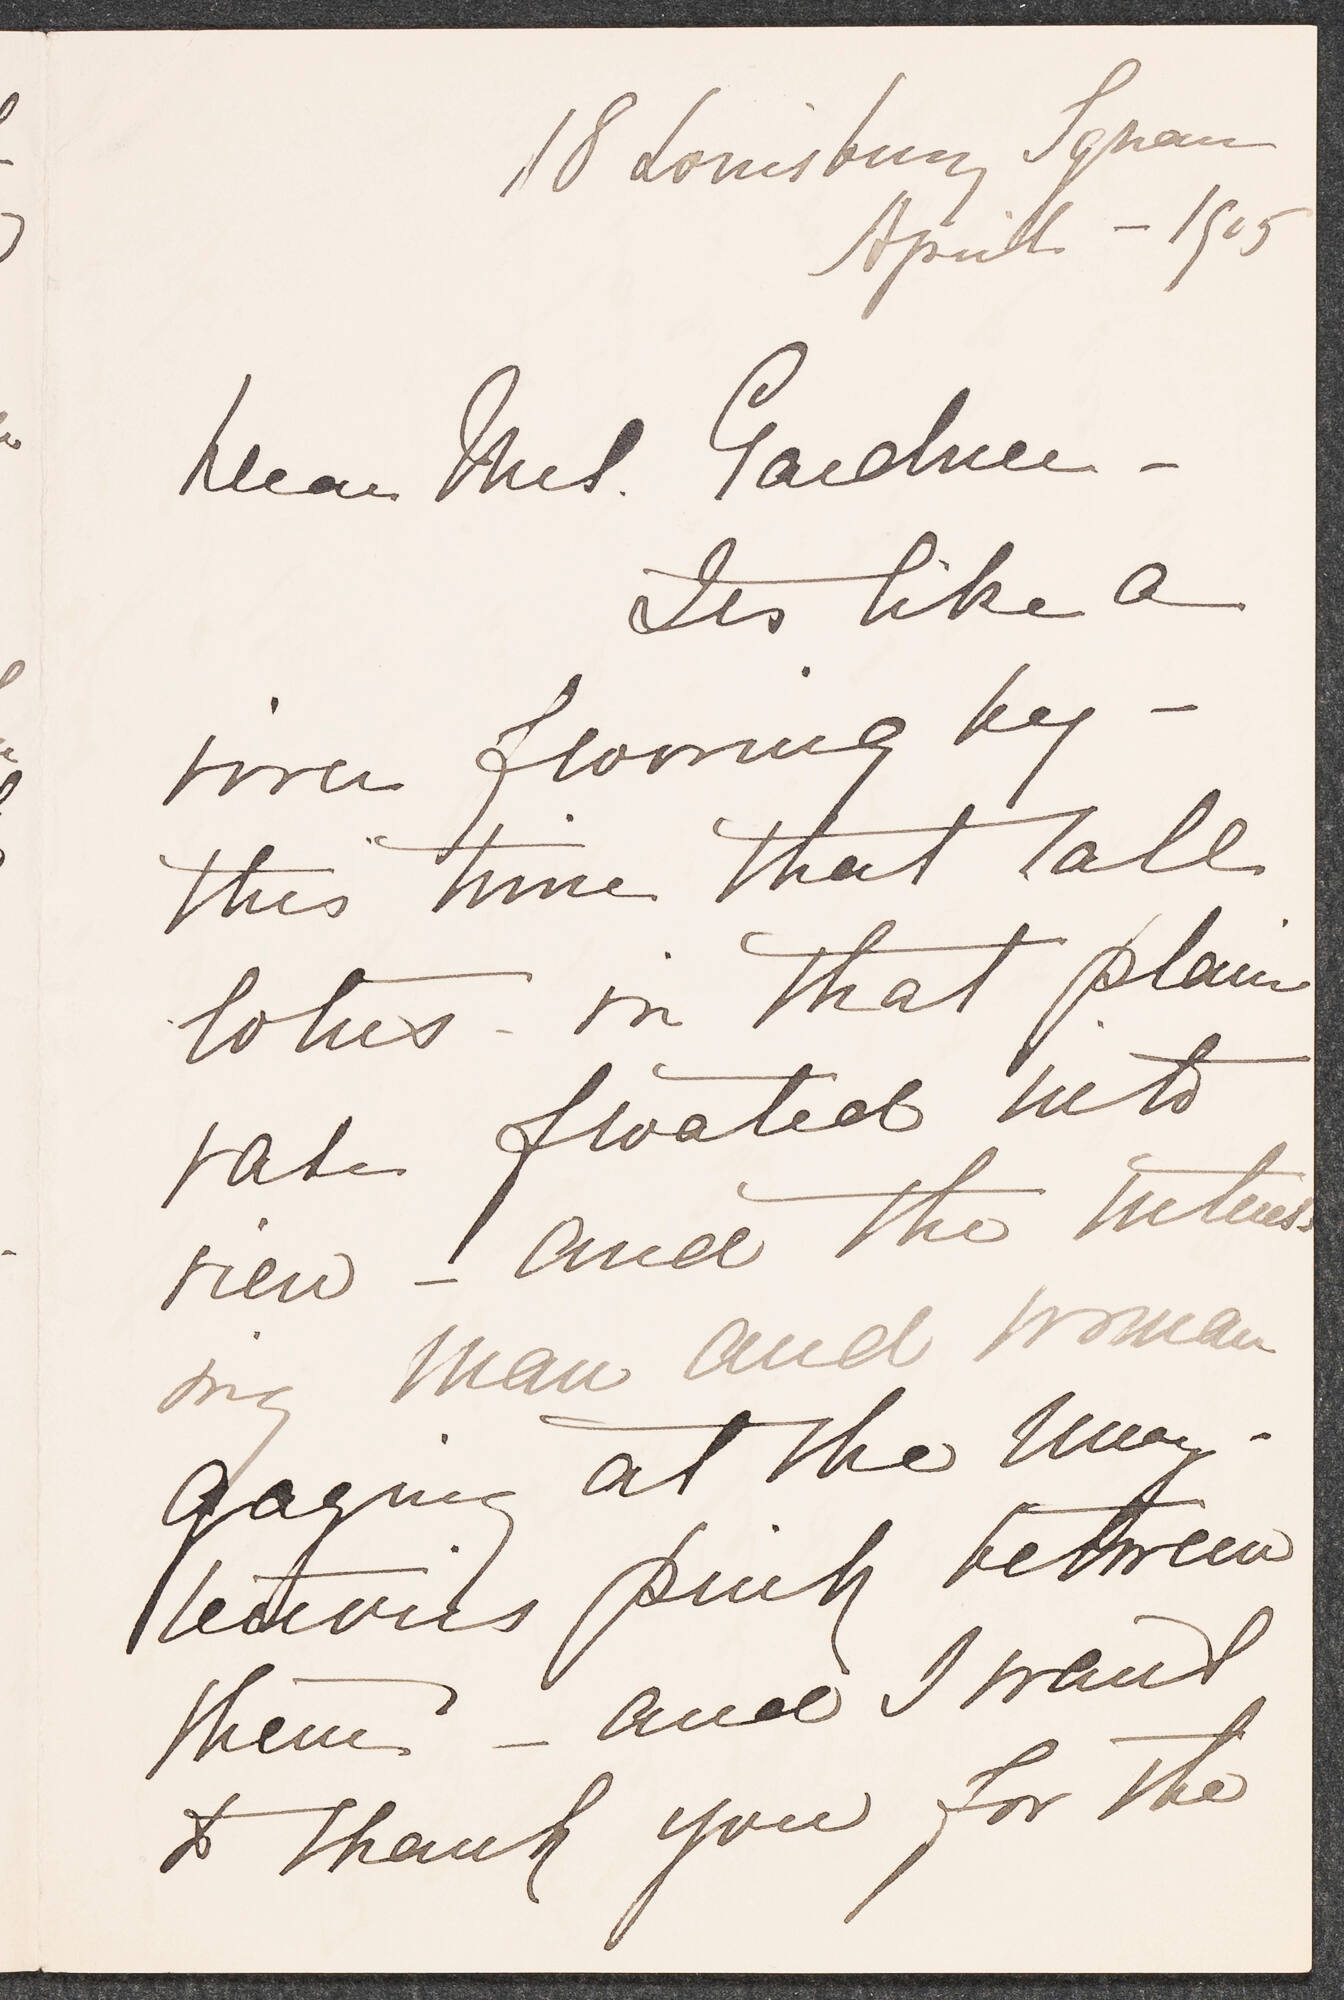 18 Louisburg Square
April - 1905
Dear Mrs. Gardner -
Its like a
river flowing by -
this time that tall
lotus - in that plain
vase floated into
view - and the interest
ing man and woman
gazing at the
pink between
them - and I want
to thank you for the